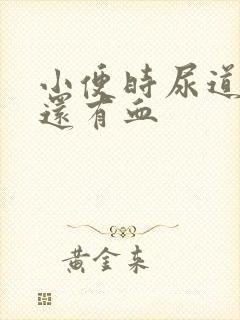 小便时尿道
還有血
黄金来